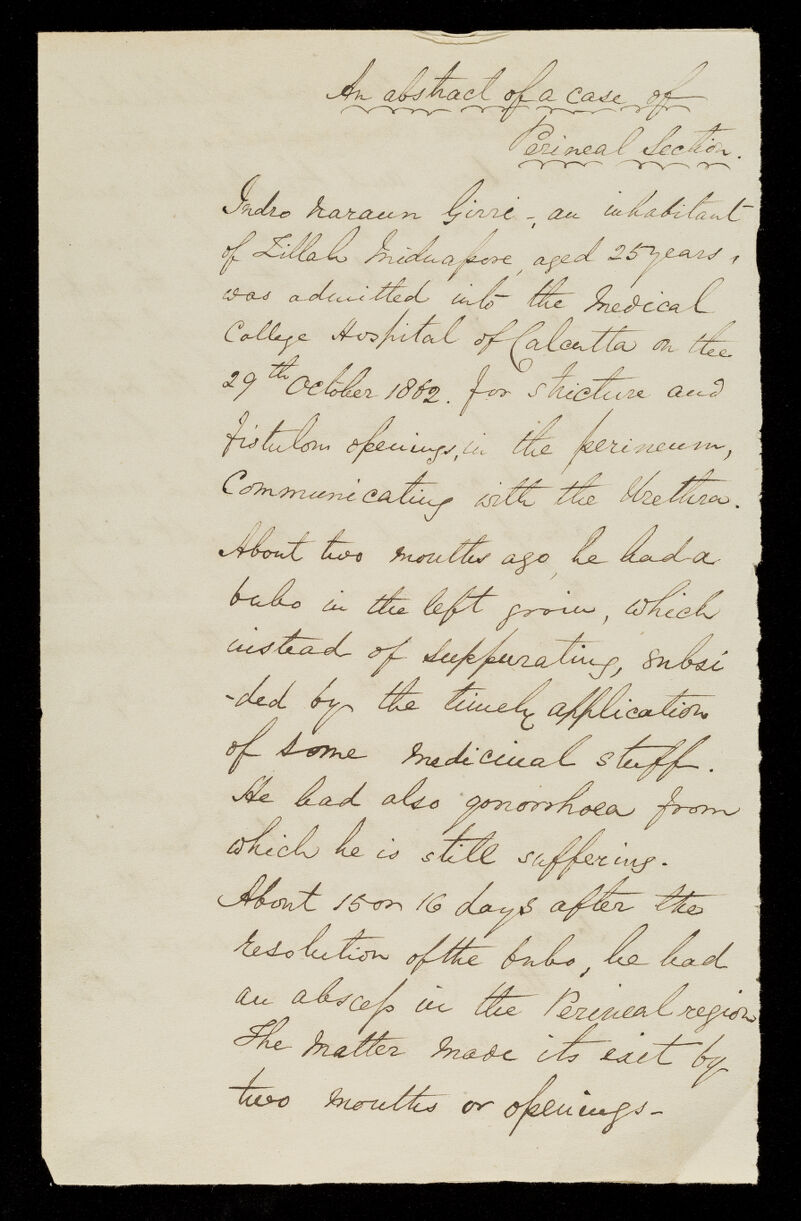 An abstract of a case of
Perineal Section.
Indro Naraun Girri -, an inhabitant
of Zillah Midnapore, aged 25 years,
was admitted into the Medical
College Hospital of Calcutta on the
29th October 1862. for stricture and
fistulous openings, in the perineum,
Communicating with the Urethra.
About two months ago, he had a
bubo in the left groin, which
instead of suppurating, subsi
-ded by the timely application
of some medicinal stuff.
He had also gonorrhoea from
which he is still suffering.
About 15 or 16 days after the
resolution of the bubo, he had
an abscess in the Perineal region
The Matter made its exit by
two mouths or openings-